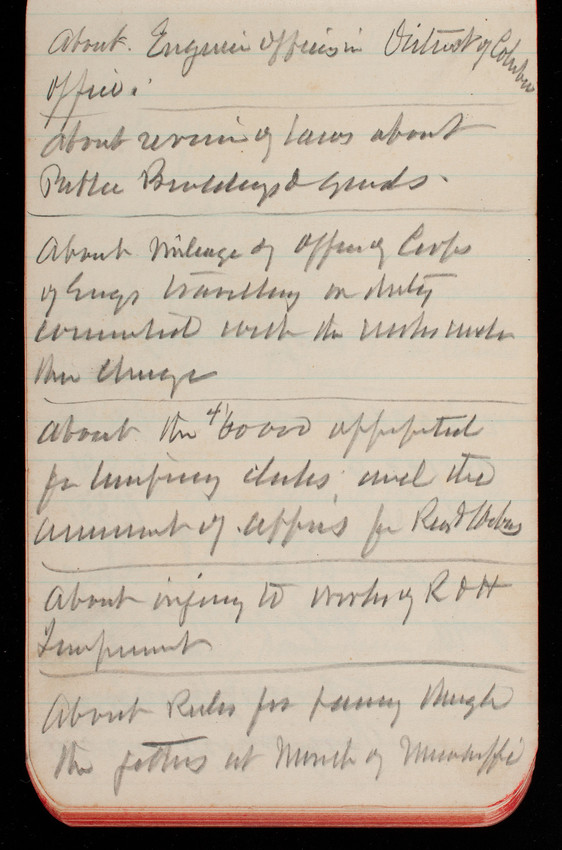 About. Engineer officers in District of Columbia
office.
About revision of laws about
Public Buildings & grounds.
About mileage of officers of Corps
of Engs travelling on duty
connected with the works under
their charge
About the 60000 appropriated
for temporary clerks, and the
amount of approps for River & Harbors
About injury to works of R & H
Improvement
About Rules for passing through
the jetties at Mouth of Mississippi